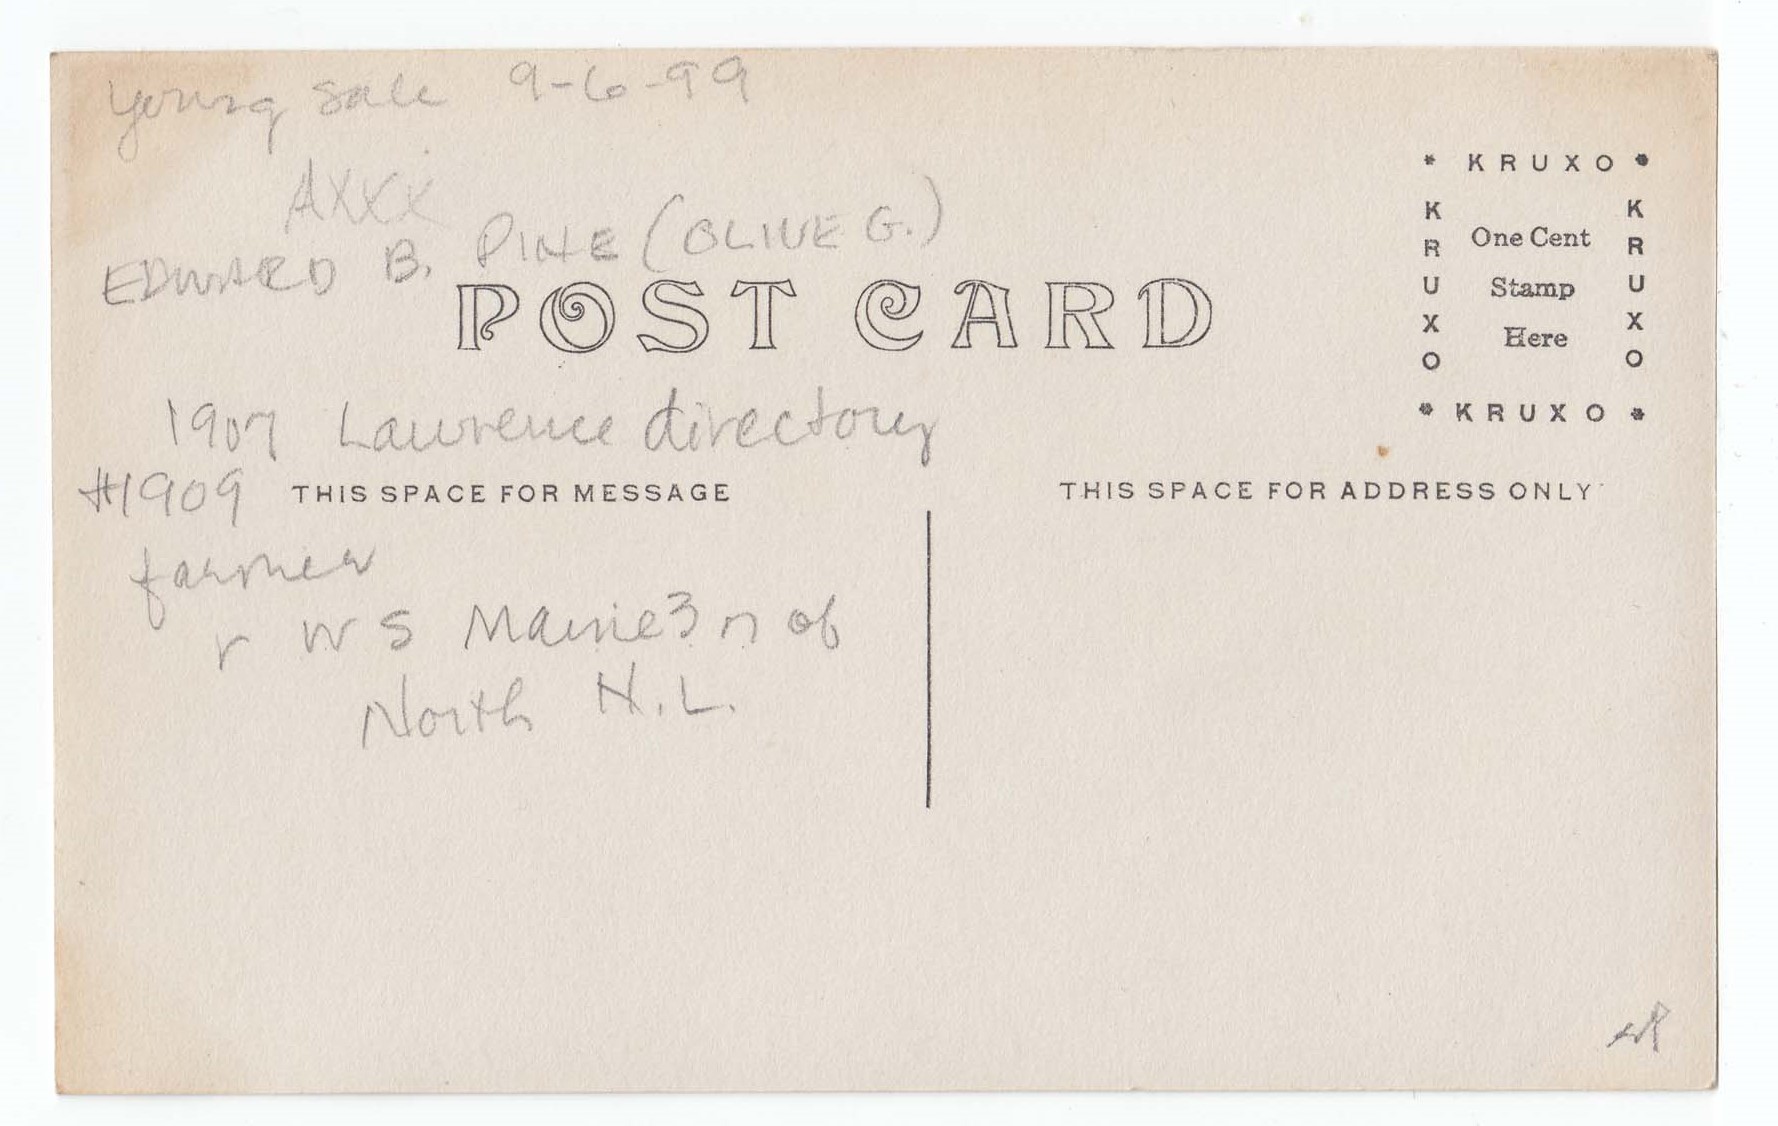 Young Sale 9-6-99
AXXX
EDWARD B. PINE (OLIVE G.)
POST CARD
* KRUXO *
KRUXO
One Cent
Stamp
Here
KRUXO
* KRUXO *
1907 Lawrence directory
#1909
THIS SPACE FOR MESSAGE
THIS SPACE FOR ADDRESS ONLY
farmer
r W S Maine 3 n of
North N.L.